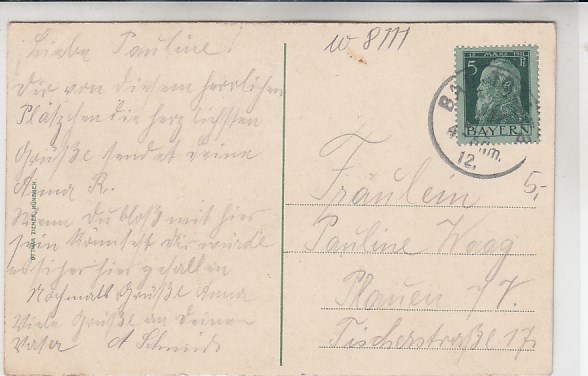 Liebe Pauline!
Dir von diesem herrlichen
Plätzchen die herzlichsten
Grüße sendet deine
Anna R.
Wenn Du bloß mit hier
sein könntest Dir würde
es sicher hier gefallen
Nochmals Grüße Anna
Viele Grüße an Deinen
Vater A Schmidt
OTTMAR ZIEHER, MÜNCHEN
w 8111
12. MÄRZ 1911
5 Pf
BAYERN
BA
Nm.
12.
5,-
Fräulein
Pauline Waag
Plauen i/V.
Fischerstraße 17.